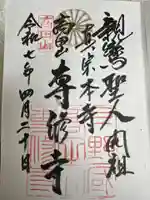 親鸞聖人開祖
真宗本寺
高田 専修寺
令和七年四月二十日